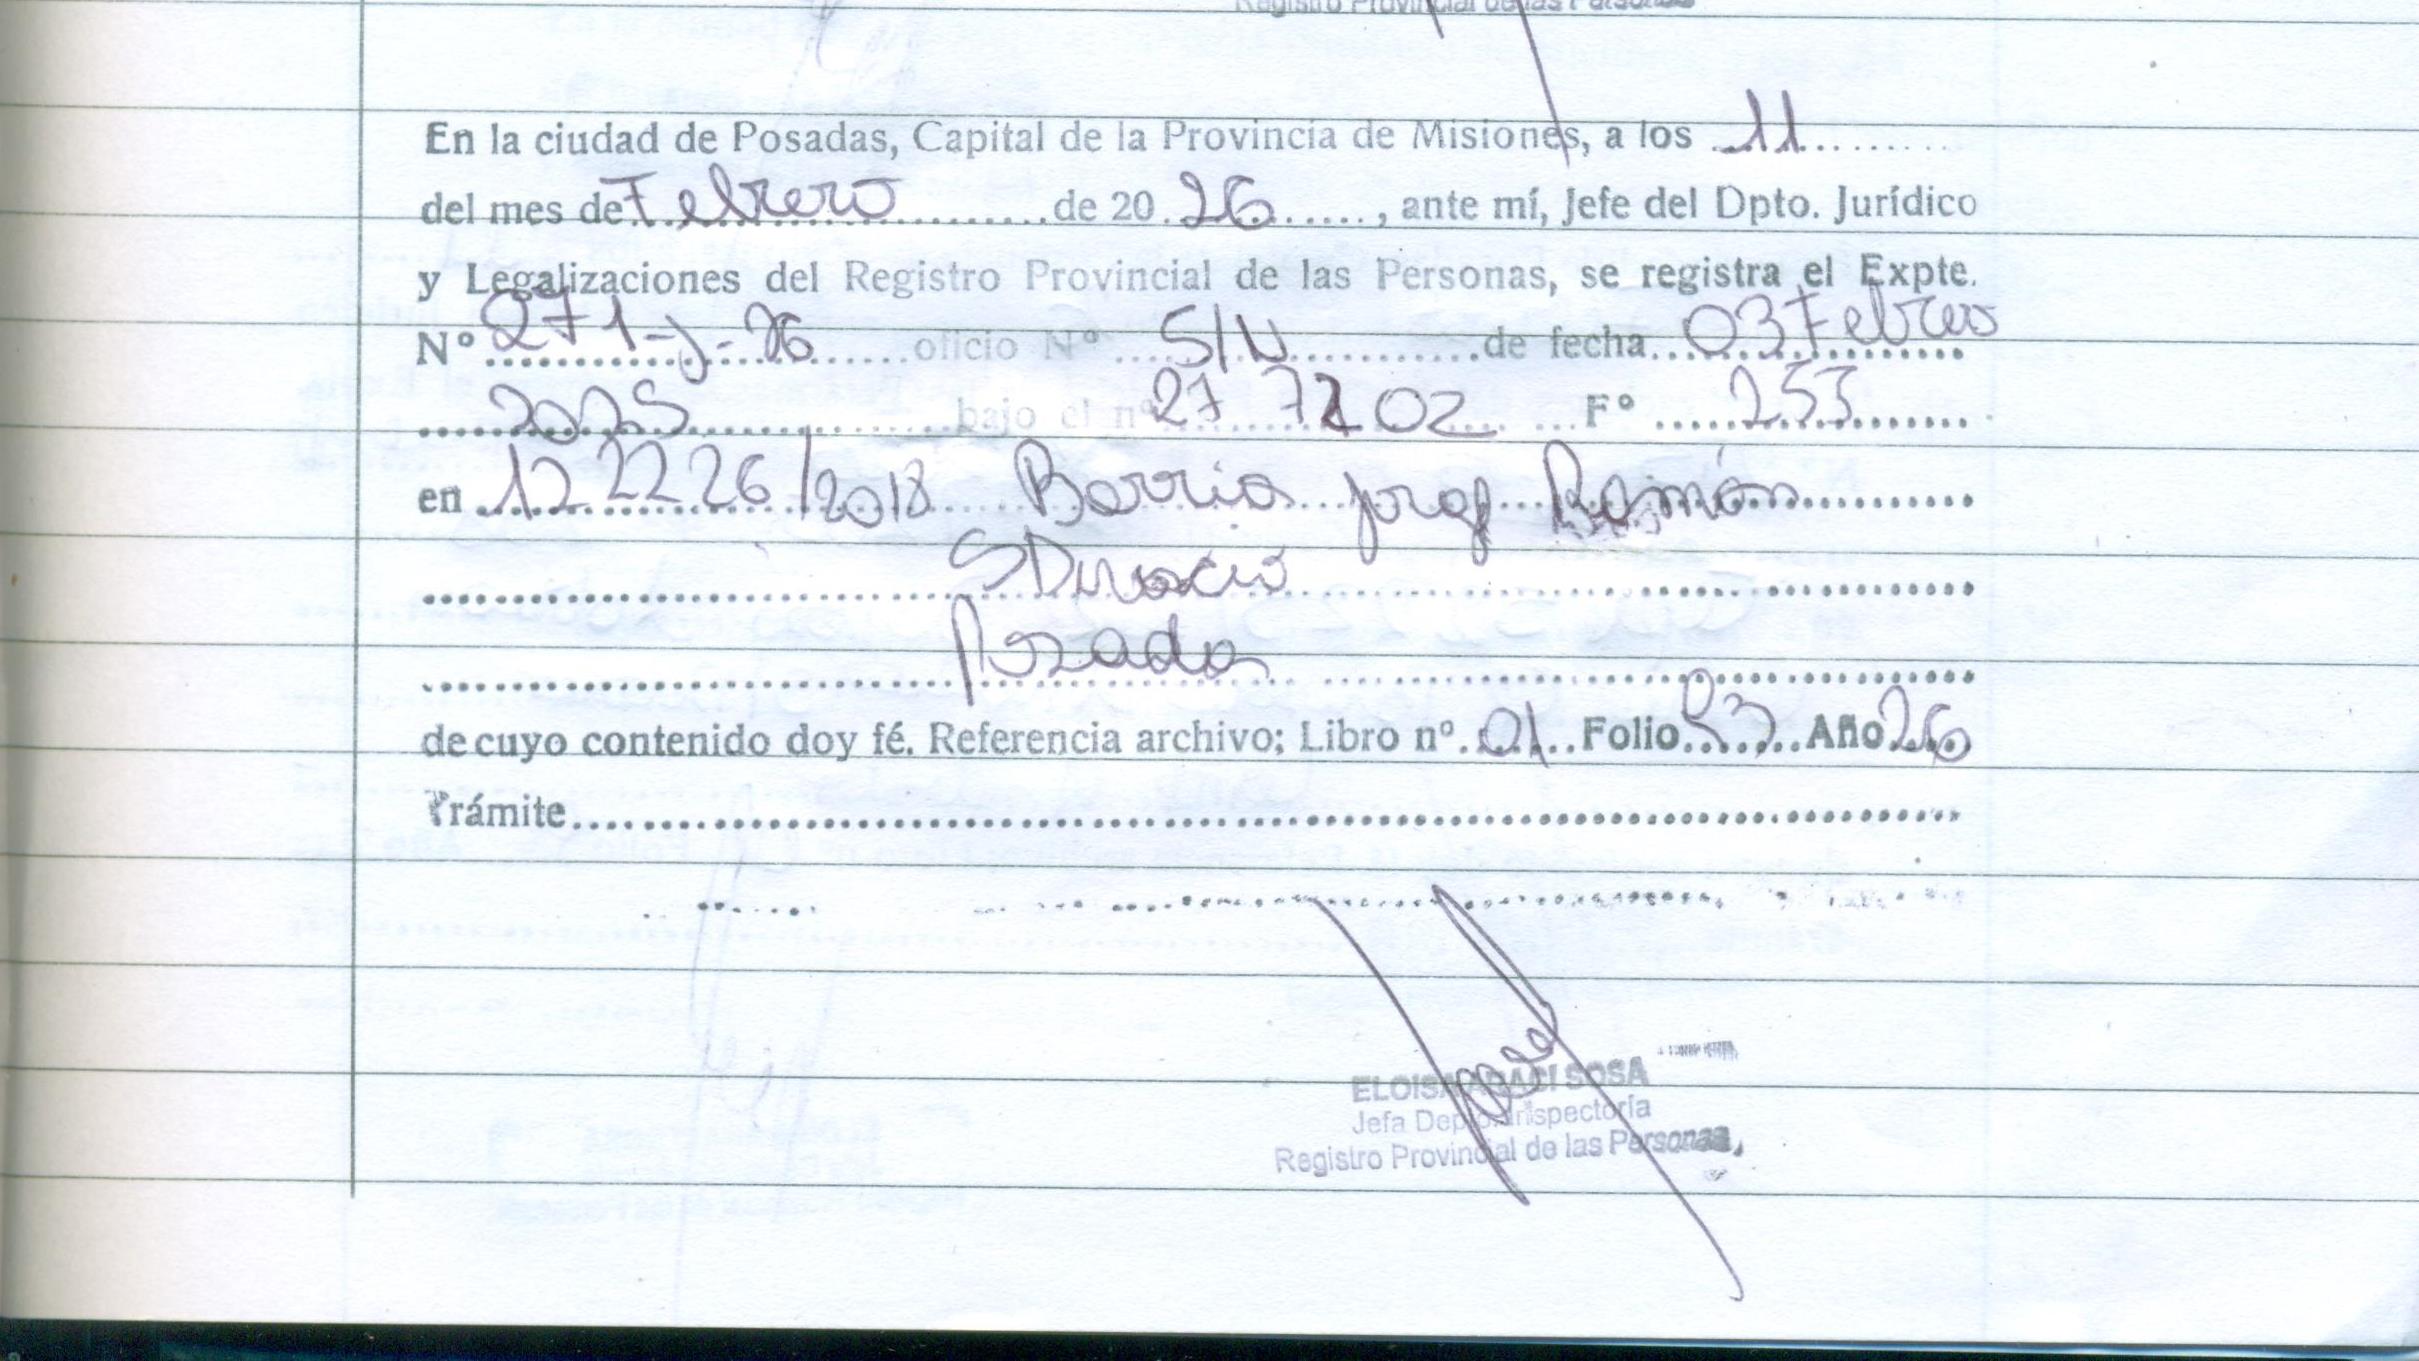 Registro Provincial de las Personas
En la ciudad de Posadas, Capital de la Provincia de Misiones, a los 11
del mes de Febrero de 20 26, ante mí, Jefe del Dpto. Jurídico
y Legalizaciones del Registro Provincial de las Personas, se registra el Expte.
Nº 271-J-26 oficio Nº S/N de fecha 03 Febrero
2025 bajo el nº 27 72 02 Fº 253
en 122226/2018 Barrios Jorge Ramón
S Divorcio
Posadas
de cuyo contenido doy fé. Referencia archivo; Libro nº 01 Folio 23 Año 26
Trámite
ELOISA ARACI SOSA
Jefa Depto. Inspectoría
Registro Provincial de las Personas